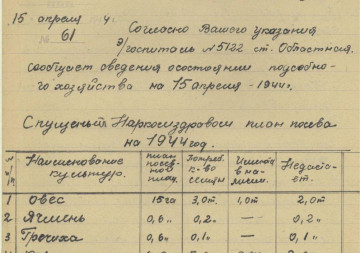 15 апреля 4
№ 61
Согласно Вашего указания
э/госпиталь №5122 ст. Областная
сообщает сведения о состоянии подсобно-
го хозяйства на 15 апреля -1944г.
Спущеный Наркомздравом план посева
на 1944 год.
Наименование культур. план посев- ной площ. Потреб. к-во семян Имеется в на- личии. Недоста- ет.
1 Овес 15га 3,0т. 1,0т 2,0т
2 Ячмень 0,6" 0,2" — 0,2"
3 Гречиха 0,6" 0,1" — 0,1"